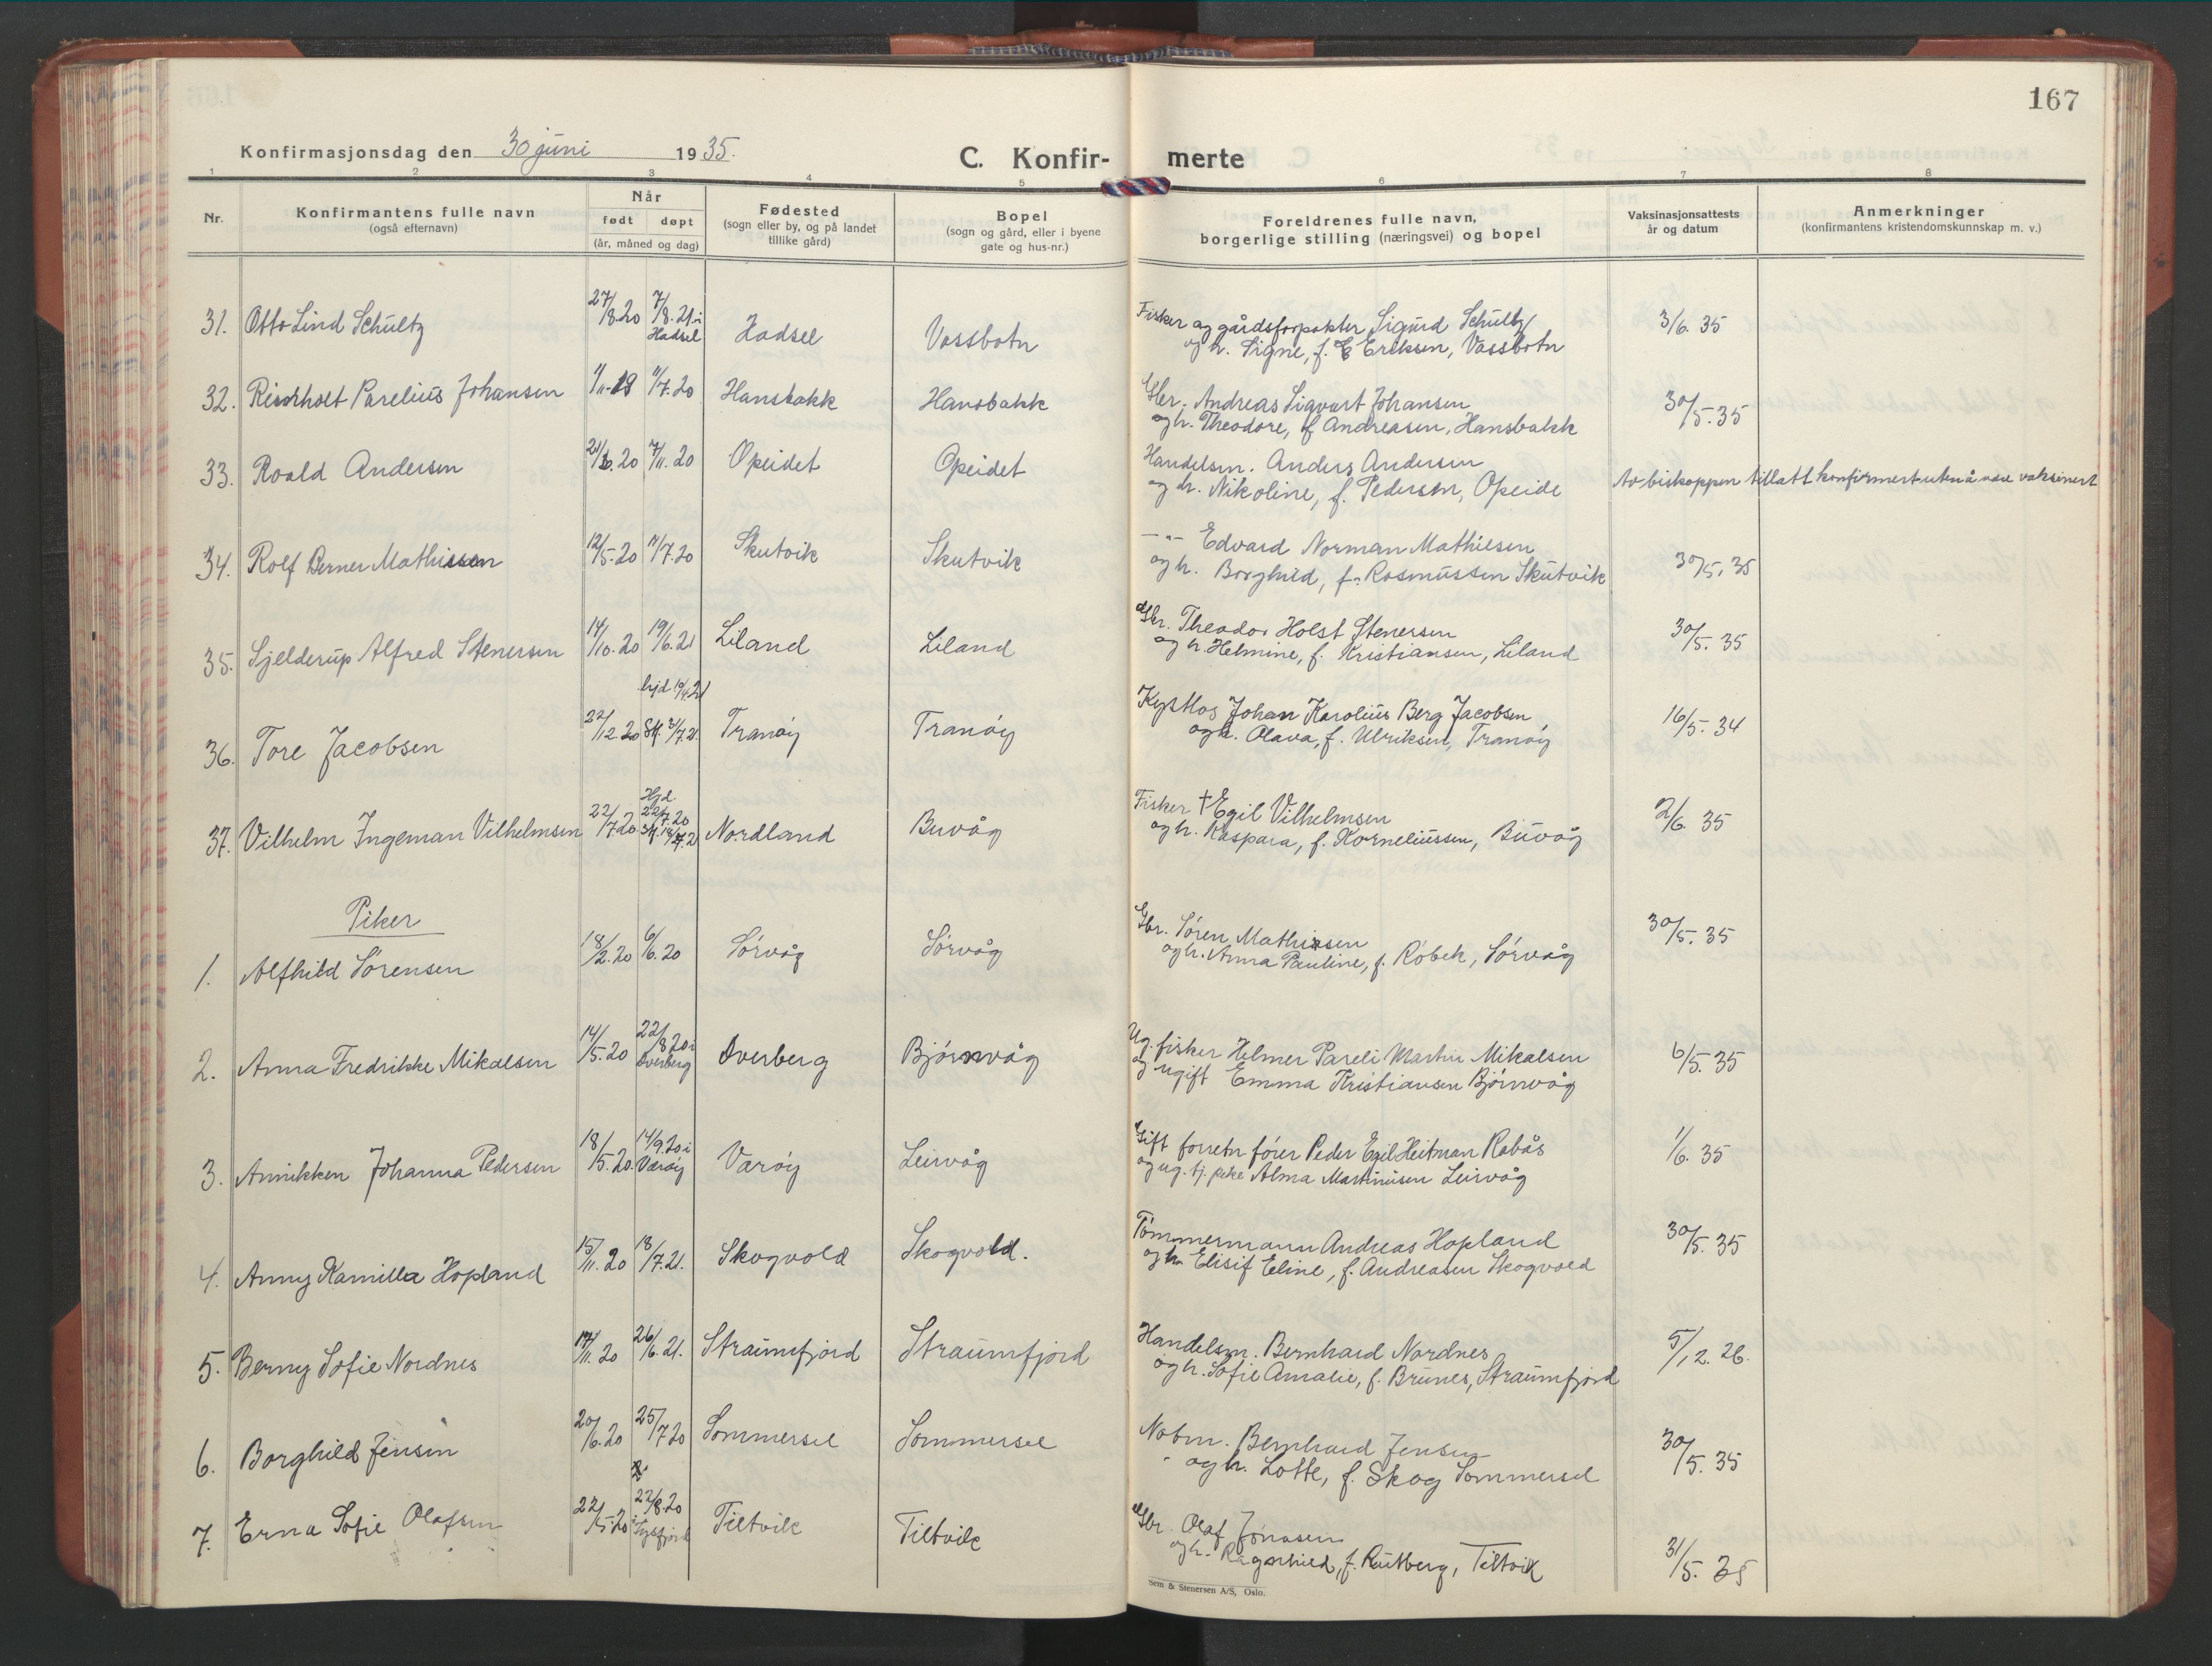 167
Konfirmasjonsdag den 30 juni 1935.
C. Konfir- merte
1 2 3 4 5 6 7 8
Nr.
Konfirmantens fulle navn
(også efternavn)
Når
født døpt
(år, måned og dag)
Fødested
(sogn eller by, og på landet
tillike gård)
Bopel
(sogn og gård, eller i byene
gate og hus-nr.)
Foreldrenes fulle navn,
borgerlige stilling (næringsvei) og bopel
Vaksinasjonsattests
år og datum
Anmerkninger
(konfirmantens kristendomskunnskap m. v.)
31. Otto Lind Schultz 27/8.20 7/8.21 i Hadsel Hadsel Vassbotn Fisker og gårdsforpakter Sigurd Schultz 3/6.35
og h. Signe, f. Eriksen, Vassbotn
32. Parelius Johansen 1/11.19 11/7.20 Hansbakk Hansbakk Gbr. Andreas Sigvart Johansen 30/5.35
og h. Theodore, f. Andreasen, Hansbakk
33. Roald Andersen 7/11.20 Opeidet Opeidet Handelsm. Anders Andersen
og h. Nikoline, f. Pedersen, Opeide Av biskoppen tillatt konfirmert uten å være vaksinert
34. Rolf Berner Mathissen 12/5.20 11/7.20 Skutvik Skutvik -"- Edvard Norman Mathiesen 30/5.35
og h. Borghild, f. Rasmussen Skutvik
35. Sjelderup Alfred Stenersen 14/10.20 19/6.21 Liland Liland Gbr. Theodor Holst Stenersen 30/5.35
og h. Helmine, f. Kristiansen, Liland
36. Tore Jacobsen 22/12.20 3/7.21 Tranøy Tranøy Johan Karolius Berg Jacobsen 16/5.34
og h. Olava, f. Ulriksen, Tranøy
37. Vilhelm Ingeman Vilhelmsen 22/7.20 Hjd. 22/7.20 Nordland Buvåg Fisker † Egil Vilhelmsen 2/6.35
og h. Kaspara, f. Korneliussen, Buvåg
Piker
1. Alfhild Sørensen 18/2.20 6/6.20 Sørvåg Sørvåg Gbr. Søren Mathissen 30/5.35
og h. Anna Pauline, f. Robek, Sørvåg
2. Anna Fredrikke Mikalsen 14/5.20 22/8.20 i Dverberg Dverberg Bjørnvåg Ug. fisker Helmer Pareli Martin Mikalsen 6/5.35
og ugift Emma Kristiansen Bjørnvåg
3. Annikken Johanna Pedersen 18/5.20 14/9.20 i Værøy Værøy Leirvåg Gift forretn fører Peder Egil Heitman Rabås 1/6.35
og ug. tj. pike Alma Martinusen Leirvåg
4. Anny Kamilla Hopland 15/11.20 18/7.21. Skogvold Skogvold. Tømmermann Andreas Hopland 30/5.35
og h. Elisif Eline, f. Andreasen Skogvold
5. Berny Sofie Nordnes 17/11.20 26/6.21. Straumfjord Straumfjord Handelsm. Bernhard Nordnes 5/12.26.
og h. Sofie Amalie, f. Brunes, Straumfjord
6. Borghild Jensen 20/6.20 25/7.20 Sommersel Sommersel Bernhard Jensen 30/5.35
og h. Lotte, f. Skog Sommersel
7. Erna Sofie Olafsen 22/5.20 22/8.20 i Tysfjord Tiltvik Tiltvik Gbr. Olaf Jonasen 31/5.35
og h. Ragnhild, f. Rutberg, Tiltvik
Sem & Stenersen A/S, Oslo.